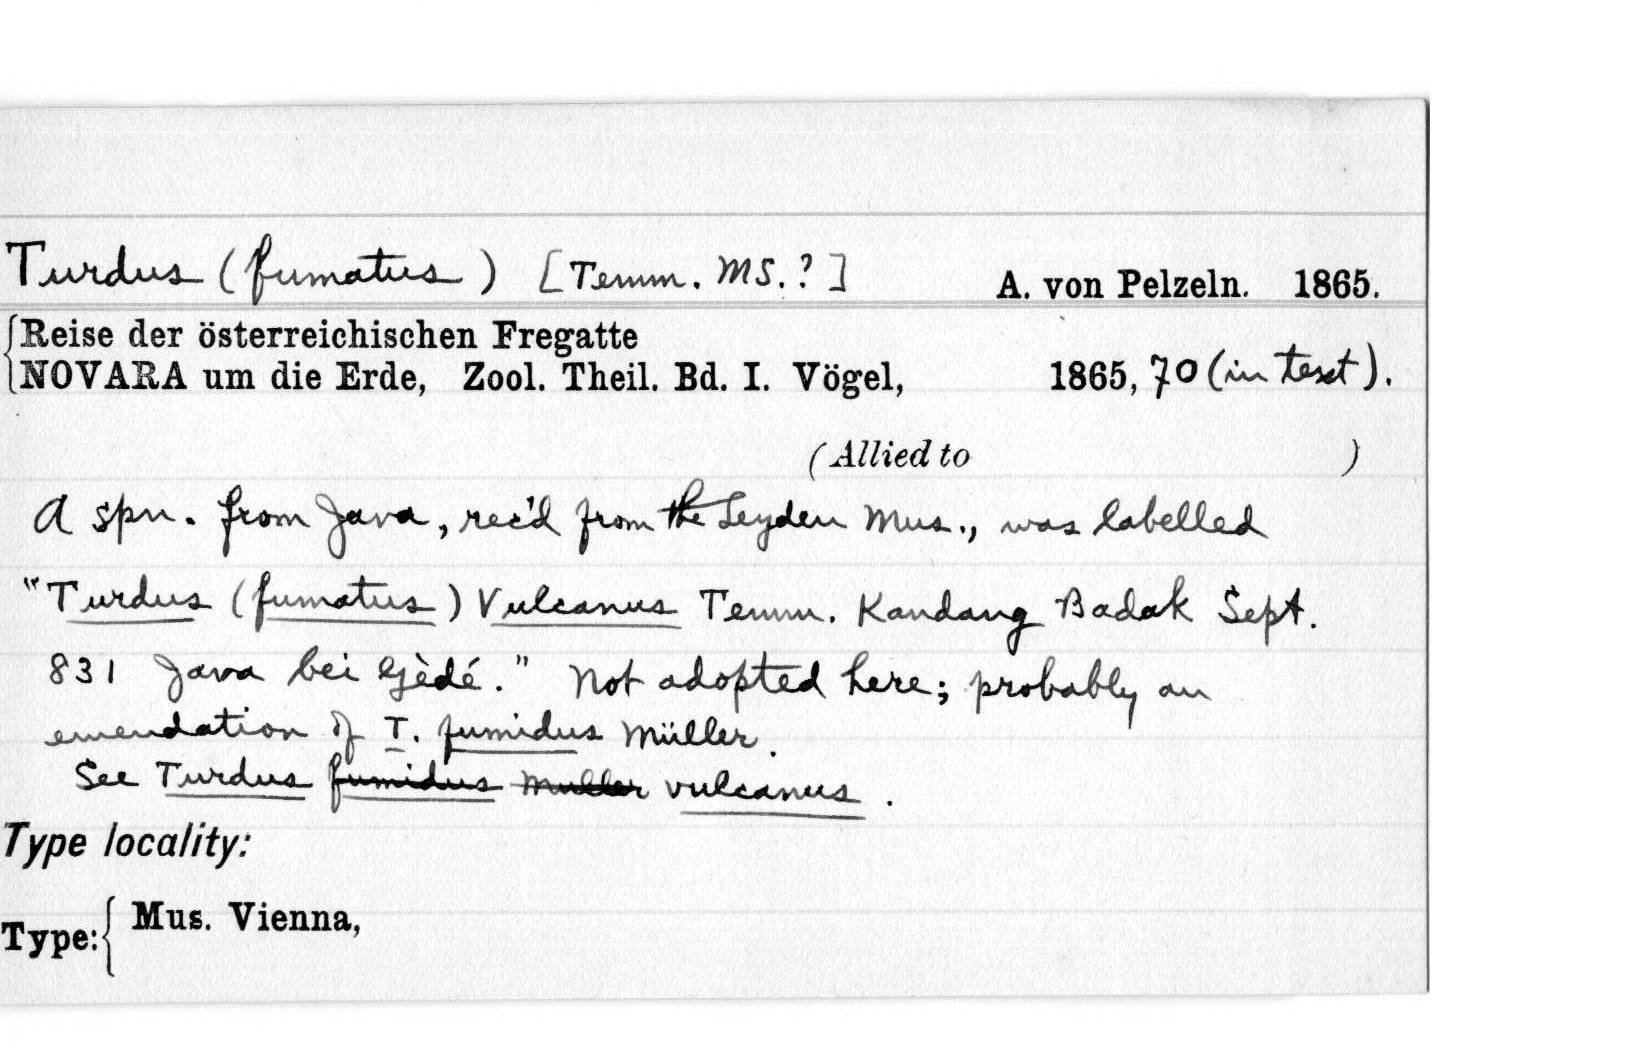 Turdus (fumatus) [Temm. MS.?] A. von Pelzeln. 1865.
Reise der österreichischen Fregatte
NOVARA um die Erde, Zool. Theil. Bd. I. Vögel, 1865, 70 (in text).
(Allied to )
A spn. from Java, rec'd from the Leyden Mus., was labelled
"Turdus (fumatus) Vulcanus Temm. Kandang Badak Sept.
831 Java bei Gèdé." Not adopted here; probably an
emendation of T. fumidus Müller.
See Turdus fumidus Muller vulcanus.
Type locality:
Type: Mus. Vienna,